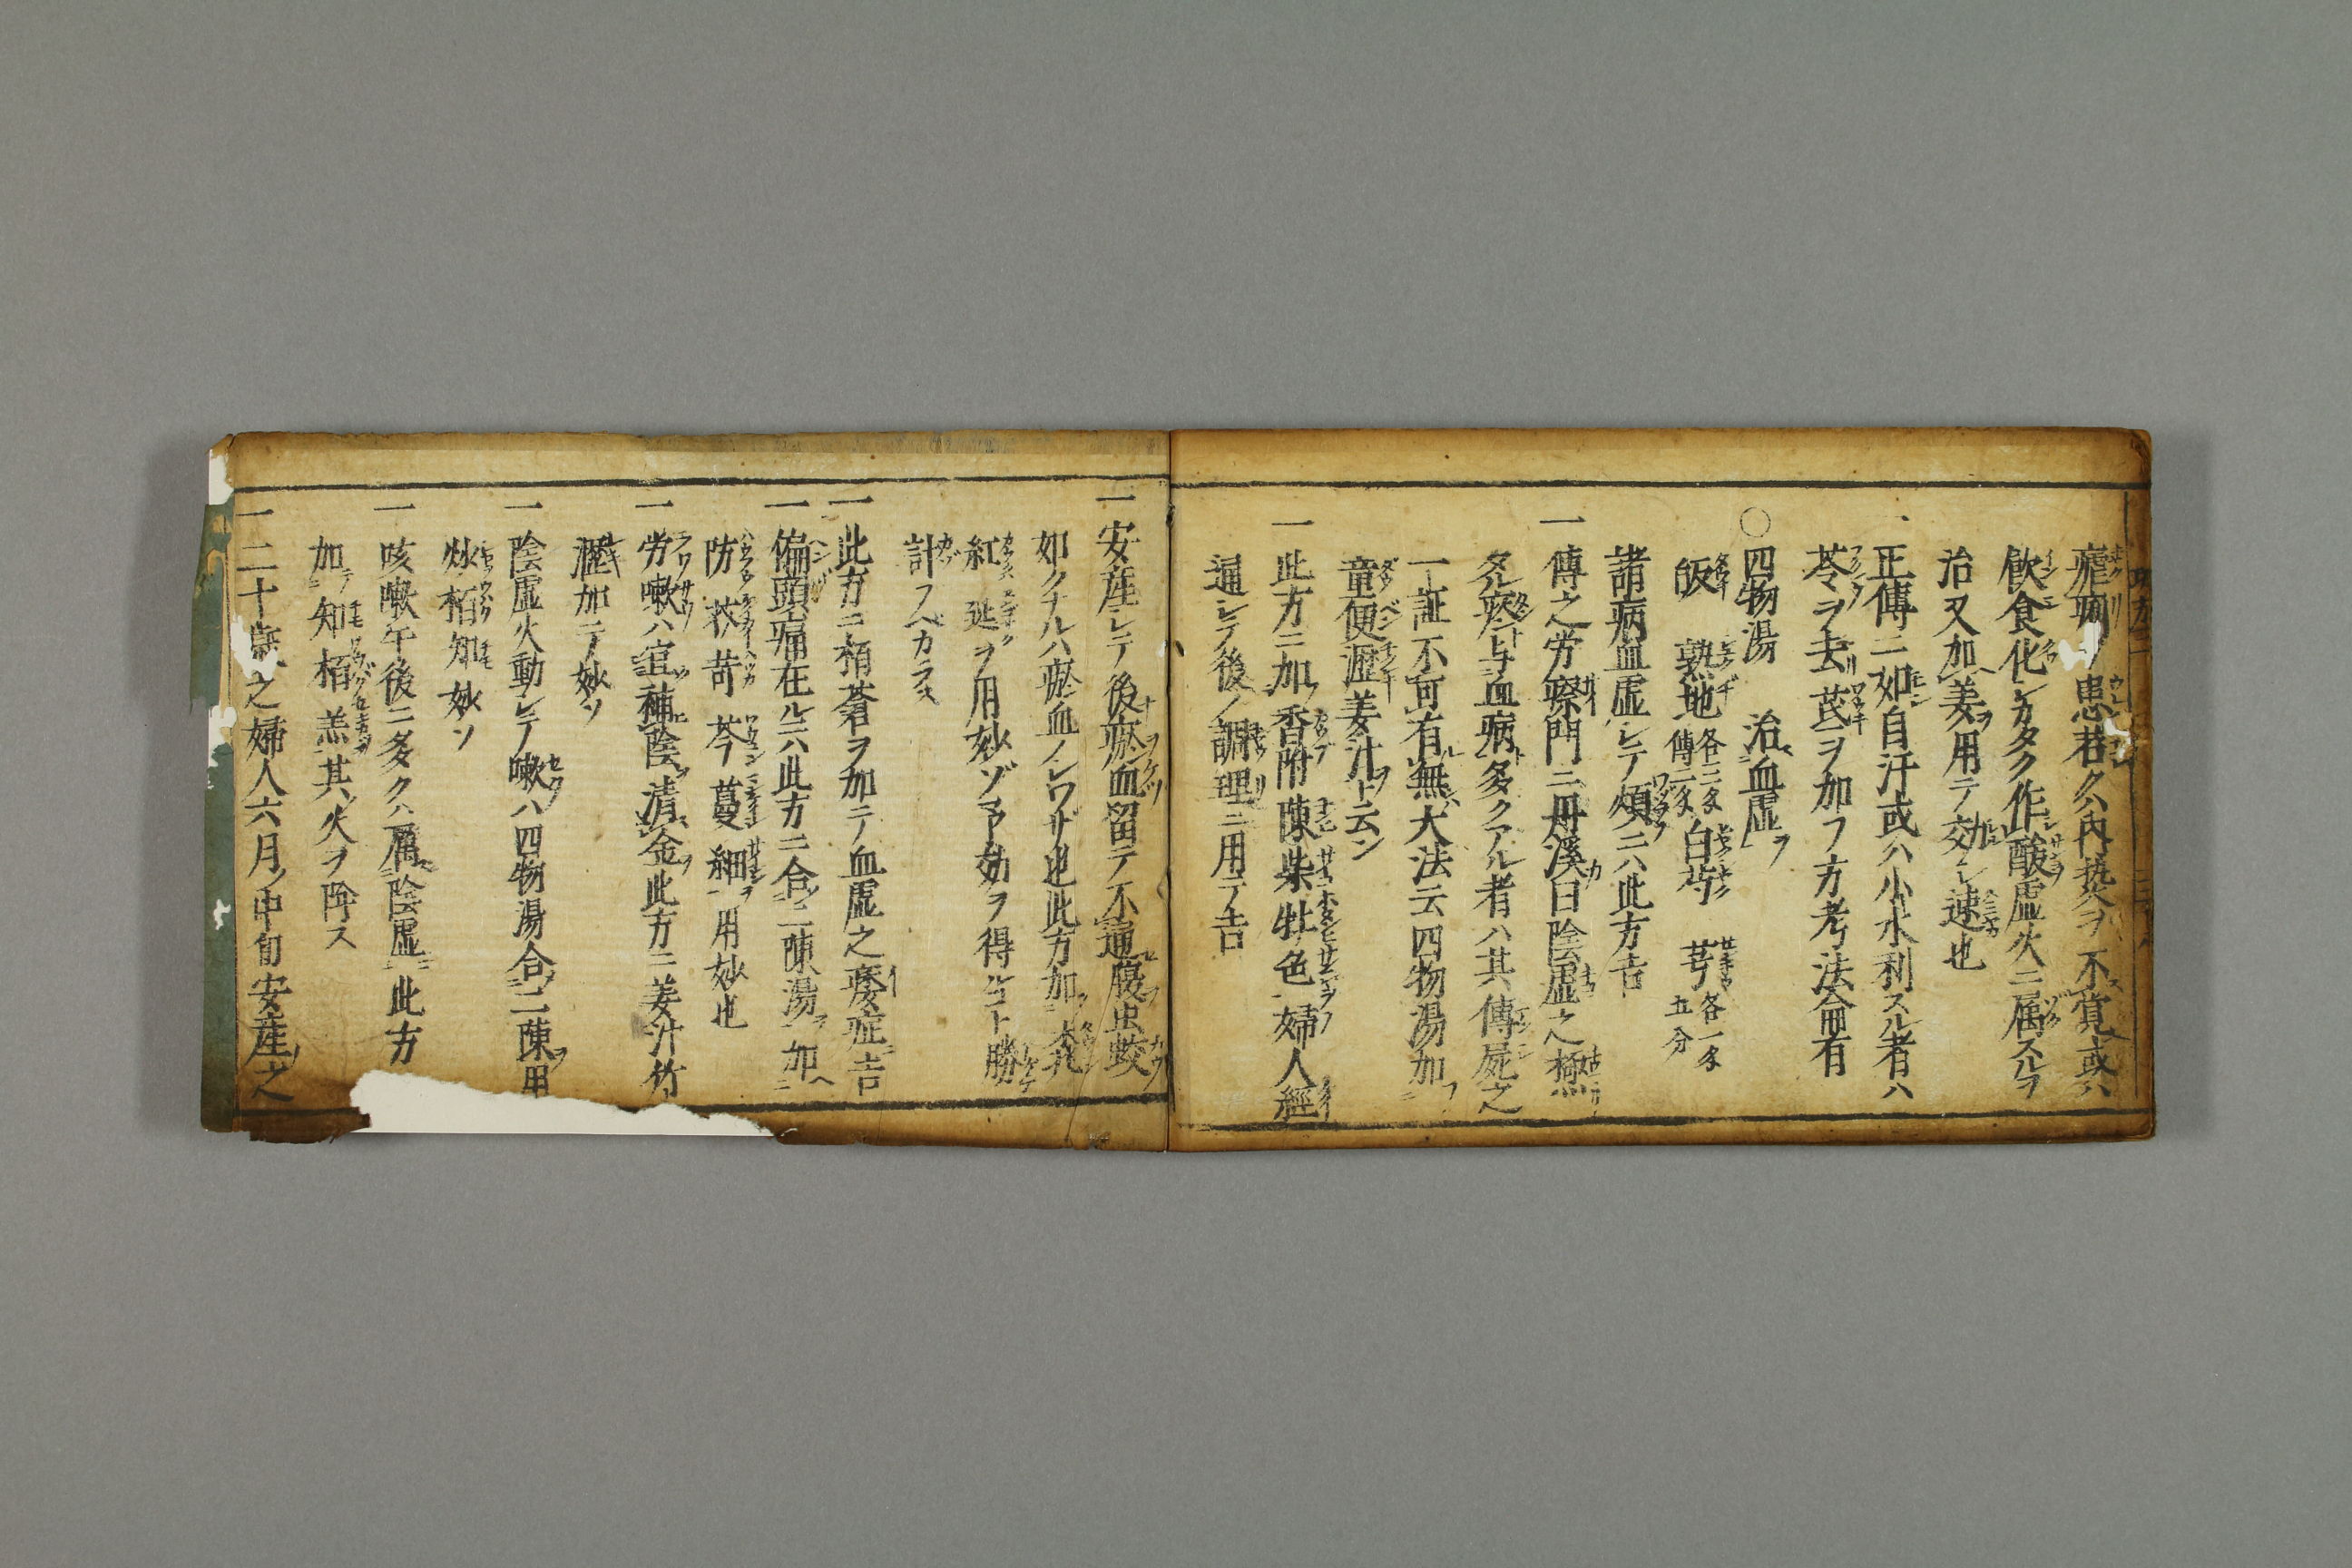 瘧痢ヲ患若クハ内热ヲ不覚或ハ
飲食化シガタク作酸虚火ニ属スルヲ
治又加姜ヲ用テ交加シ速也
正傳ニ如自汗或ハ小水利スル者ハ
苓ヲ去芪ヲ加フ方考法全有
○四物湯 治血虚ヲ
皈 熟地 各二匁 傳一匁 白芍 芎 各一匁 五分
諸病血虚シテ煩ニハ此方吉
一 傳之労瘵門ニ丹溪曰陰虚之極
タル痰与血病多クアル者ハ其傳屍之
一証不可有無大法云四物湯加
童便瀝姜汁ト云ン
一 此方ニ加香附陳柴牡色婦人經
通シテ後ノ調理ニ用テ吉
一 安産シテ後瘀血留テ不通腹虫蛟
如クナルハ瘀血ノシワザ也此方加
紅延ヲ用妙ゾマ効ヲ得ルコト勝
計スベカラス
一 此方ニ栢蒼ヲ加テ血虚之痿症吉
一 偏頭痛在ルニハ此方ニ合二陳湯加
防 荻 苛 芩 蔓 細ヲ用妙也
一 労嗽ハ宜補陰清金此方ニ姜汁竹
瀝加テ妙ソ
一 陰虚火動シテ嗽ハ四物湯合二陳用
炒栢知妙ソ
一 咳嗽午後ニ多クハ属陰虚此方
加テ知栢羔其火ヲ降ス
一 二十之婦人六月ノ中旬安産之